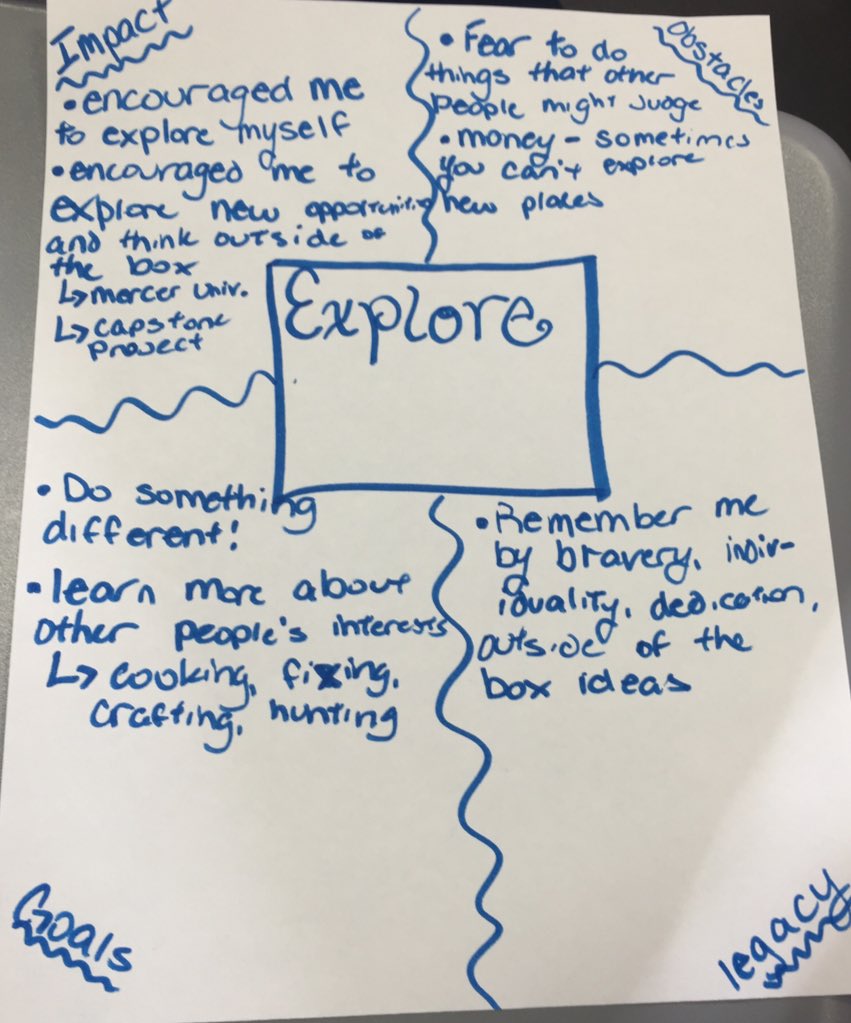 Impact
• encouraged me
to explore myself
• encouraged me to
explore new opportunities
and think outside of
the box
↳ mercer univ.
↳ capstone
project
Obstacles
• Fear to do
things that other
people might judge
• money - sometimes
you can't explore
new places
Explore
• Do something
different!
• learn more about
other people's interests
↳ cooking, fixing,
crafting, hunting
Goals
• Remember me
by bravery, indiv-
iduality, dedication,
outside of the
box ideas
legacy